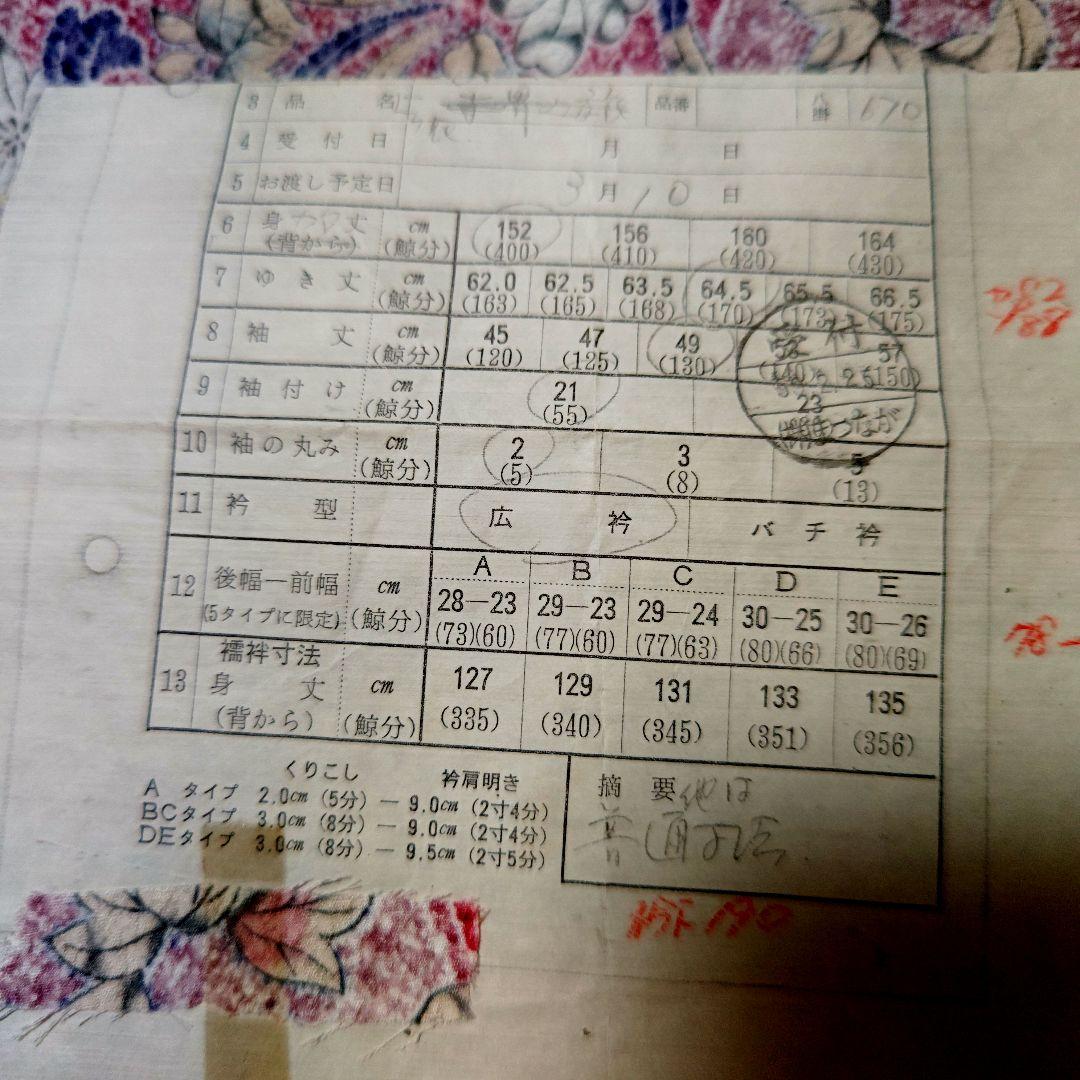 3 品名 品番 670
4 受付日 月 日
5 お渡し予定日 3月10日
6 身丈 cm 152 156 160 164
(背から) (鯨分) (400) (410) (420) (430)
7 ゆき丈 cm 62.0 62.5 63.5 64.5 65.5 66.5
(鯨分) (163) (165) (168) (170) (173) (175)
8 袖丈 cm 45 47 49 57
(鯨分) (120) (125) (130) (140) (150)
9 袖付け cm 21 23
(鯨分) (55)
受付
つなが
10 袖の丸み cm 2 3 5
(鯨分) (5) (8) (13)
11 衿型 広衿 バチ衿
A B C D E
12 後幅一前幅 cm 28—23 29—23 29—24 30—25 30—26
(5タイプに限定) (鯨分) (73)(60) (77)(60) (77)(63) (80)(66) (80)(69)
襦袢寸法
13 身丈 cm 127 129 131 133 135
(背から) (鯨分) (335) (340) (345) (351) (356)
くりこし 衿肩明き
A タイプ 2.0cm (5分) — 9.0cm (2寸4分)
BCタイプ 3.0cm (8分) — 9.0cm (2寸4分)
DEタイプ 3.0cm (8分) — 9.5cm (2寸5分)
摘要 他は
普通寸法
190